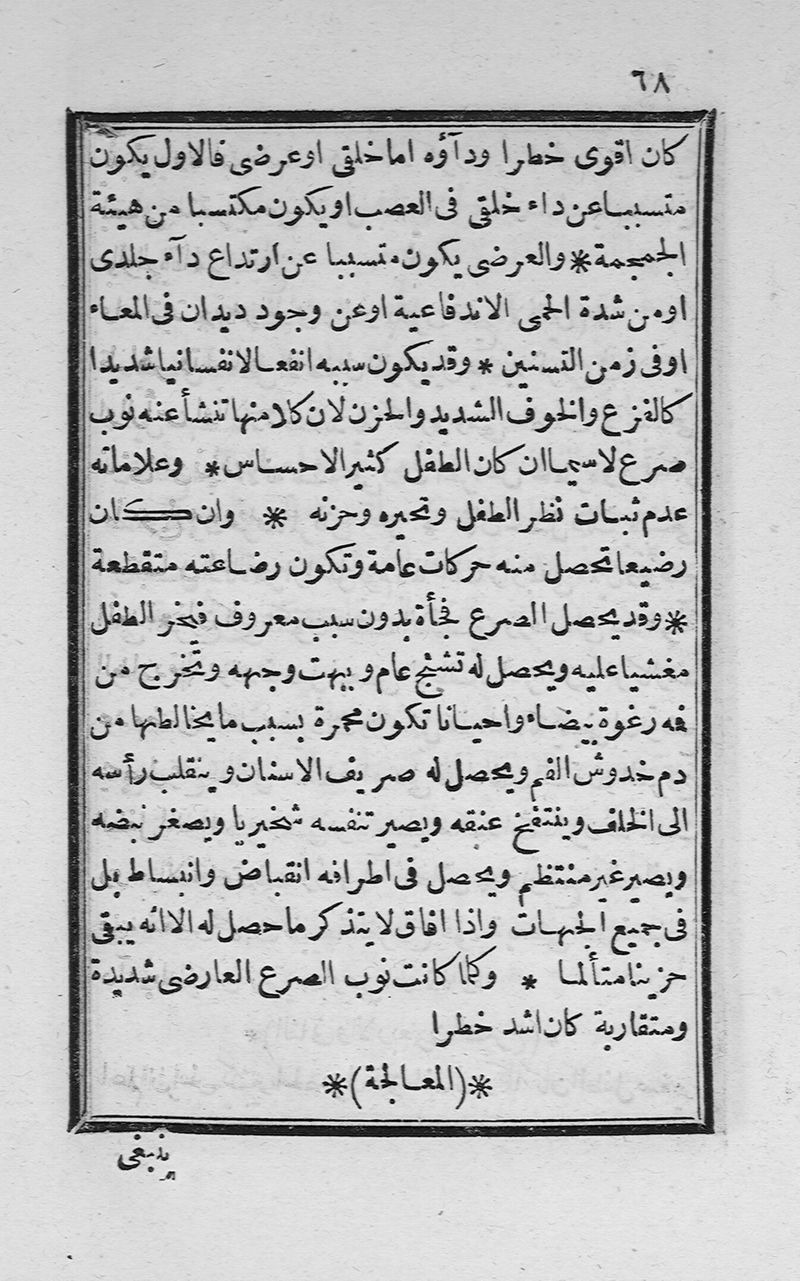 ٦٨
كان اقوى خطرا ودآؤه اما خلقى او عرضى فالاول يكون
متسببا عن داء خلقى فى العصب او يكون مكتسبا من هيئة
الجمجمة * والعرضى يكون متسببا عن ارتداع دآء جلدى
او من شدة الحمى الاندفاعية او عن وجود ديدان فى المعاء
او فى زمن التسنين * وقد يكون سببه انفعالا نفسانيا شديدا
كالفزع والخوف الشديد والحزن لان كلا منها تنشأ عنه نوب
صرع لاسيما ان كان الطفل كثير الاحساس * وعلاماته
عدم ثبات نظر الطفل وتحيره وحزنه * وان كان
رضيعا تحصل منه حركات عامة وتكون رضاعته متقطعة
* وقد يحصل الصرع فجأة بدون سبب معروف فيخر الطفل
مغشيا عليه ويحصل له تشنج عام ويبهت وجهه وتخرج من
فمه رغوة بيضاء واحيانا تكون محمرة بسبب ما يخالطها من
دم خدوش الفم ويحصل له صريف الاسنان وينقلب رأسه
الى الخلف وينتفخ عنقه ويصير تنفسه شخيريا ويصغر نبضه
ويصير غير منتظم ويحصل فى اطرافه انقباض وانبساط بل
فى جميع الجهات واذا افاق لا يتذكر ما حصل له الا انه يبقى
حزينا متألما * وكلما كانت نوب الصرع العارضى شديدة
ومتقاربة كان اشد خطرا
*(المعالجة)*
ينبغى